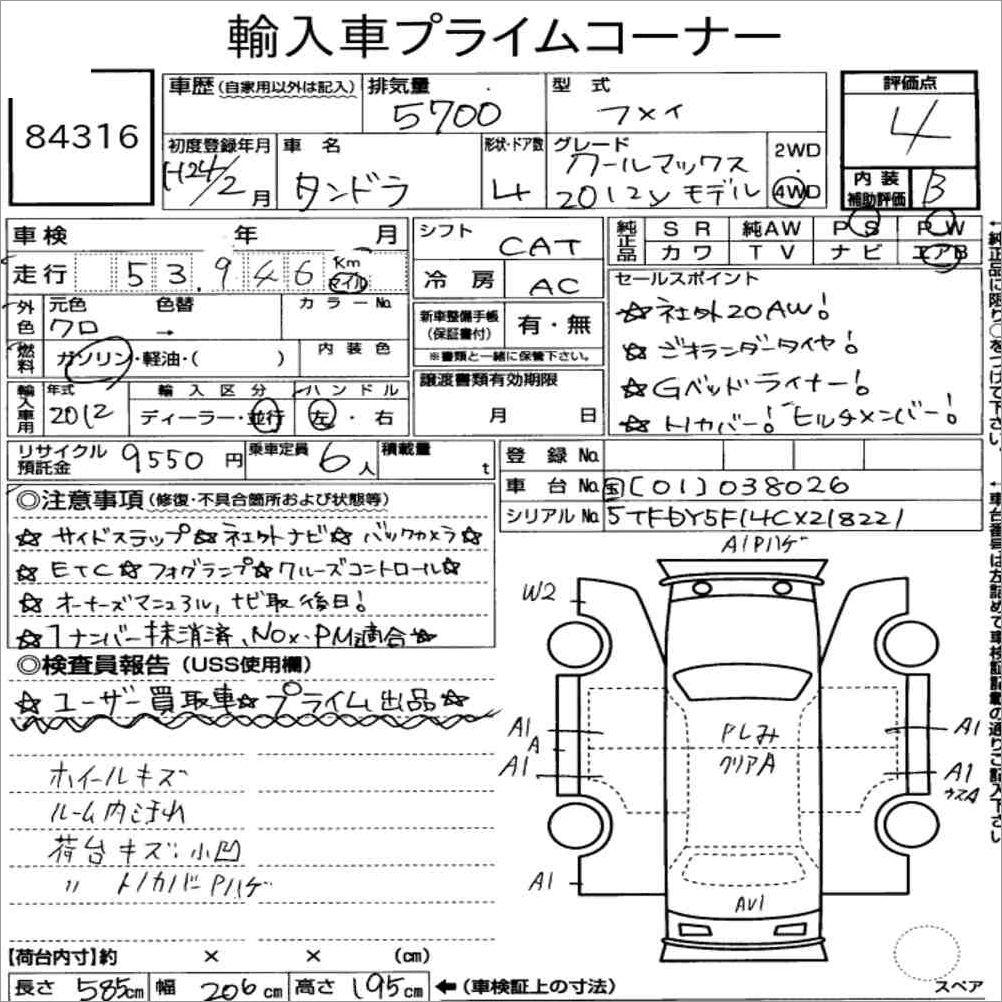 輸入車プライムコーナー
84316
車歴 (自家用以外は記入)
排気量
5700
型 式
フメイ
評価点
4
初度登録年月
H24/2月
車 名
タンドラ
形状・ドア数
4
グレード
クールマックス
2012yモデル
2WD
4WD
内 装
補助評価
B
車 検 年 月
走行 53,946 Km マイル
外色
元色
クロ
色替
→
カラーNo.
燃料
ガソリン・軽油・( )
内 装 色
輸入車用
年式
2012
輸 入 区 分
ディーラー・並行
ハ ン ド ル
左・右
シフト
CAT
冷 房
AC
新車整備手帳
(保証書付)
有・無
※書類と一緒に保管下さい。
譲渡書類有効期限
月 日
純正品
S R 純AW P S P W
カ ワ T V ナ ビ エアB
セールスポイント
☆社外20AW!
☆ジオランダータイヤ!
☆Gベッドライナー!
☆トノカバー! ヒッチメンバー!
←純正品に限り○をつけて下さい。
リサイクル
預託金
9550円
乗車定員
6人
積載量
t
登 録 No.
車 台 No. 国[01]038026
シリアルNo. 5TFDY5F14CX218221
←車台番号は左詰めで車検証記載の通りご記入下さい
◎注意事項 (修復・不具合箇所および状態等)
☆サイドステップ☆社外ナビ☆バックカメラ☆
☆ETC☆フォグランプ☆クルーズコントロール☆
☆オーナーズマニュアル,ナビ取後日!
☆1ナンバー抹消済、NOx・PM適合☆
◎検査員報告 (USS使用欄)
☆ユーザー買取車☆プライム出品☆
ホイールキズ
ルーム内汚れ
荷台キズ:小凹
〃 トノカバーPハゲ
A1Pハゲ
W2
A1
A
A1
A1
Pしみ
クリアA
A1
A1
ウスA
AV1
スペア
【荷台内寸】約 × × (cm)
長さ 585cm 幅 206cm 高さ 195cm ←(車検証上の寸法)